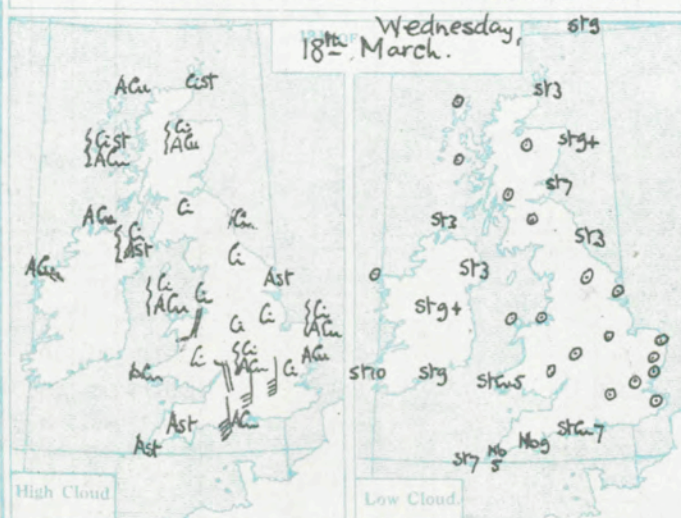 Wednesday,
18th March.
ACu
CiSt
{Ci
ACu
{CiSt
ACu
Ci
ACu
{Ci
ASt
Ci
ASt
{Ci
ACu
Ci
Ci
Ci
{Ci
ACu
{Ci
ACu
Ci
Ci
ACu
ACu
ASt
ACu
ASt
High Cloud.
St9
St3
St9+
St7
St3
St3
St3
St9+
St10
St9
StCu5
StCu7
Nb9
Nb
5
St7
Low Cloud.